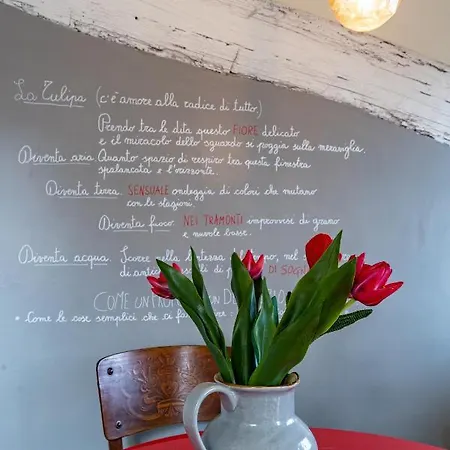 La Tulipa (c'è amore alla radice di tutto.)
Prendo tra le dita questo FIORE delicato
e il miracolo dello sguardo si poggia sulla meraviglia.
Diventa aria. Quanto spazio di respiro tra questa finestra
spalancata e l'orizzonte.
Diventa terra. SENSUALE ondeggia di colori che mutano
con le stagioni.
Diventa fuoco. NEI TRAMONTI improvvisi di grano
e nuvole basse.
Diventa acqua. Scorre nella
di DI
COME UN
* Come le cose semplici che ci